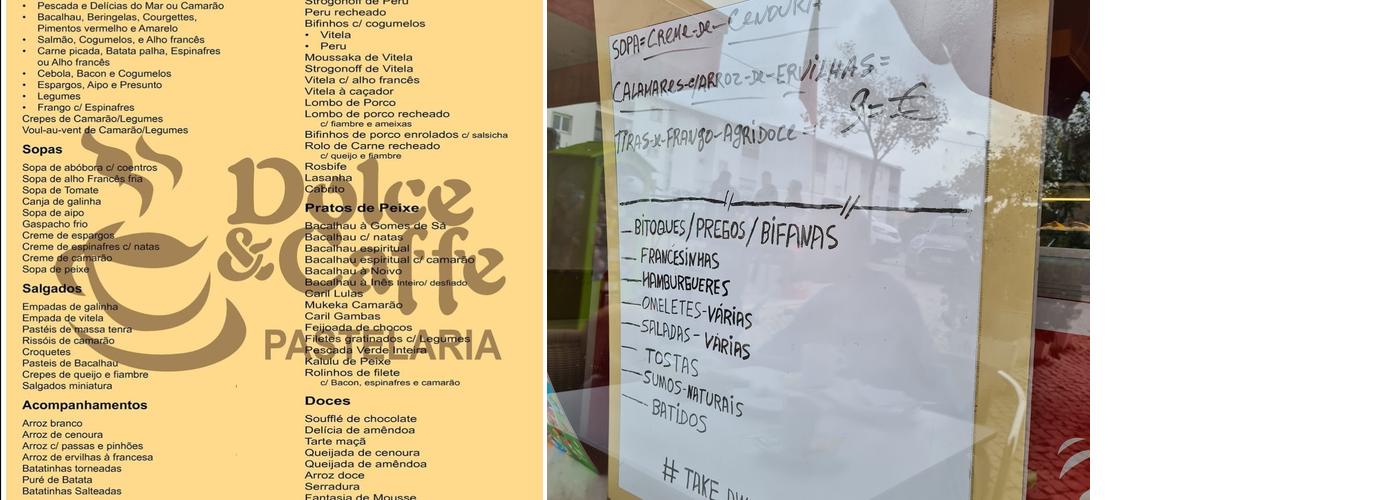 • Pescada e Delícias do Mar ou Camarão
• Bacalhau, Beringelas, Courgettes,
Pimentos vermelho e Amarelo
• Salmão, Cogumelos, e Alho francês
• Carne picada, Batata palha, Espinafres
ou Alho francês
• Cebola, Bacon e Cogumelos
• Espargos, Aipo e Presunto
• Legumes
• Frango c/ Espinafres
Crepes de Camarão/Legumes
Voul-au-vent de Camarão/Legumes
Sopas
Sopa de abóbora c/ coentros
Sopa de alho Francês fria
Sopa de Tomate
Canja de galinha
Sopa de aipo
Gaspacho frio
Creme de espargos
Creme de espinafres c/ natas
Creme de camarão
Sopa de peixe
Salgados
Empadas de galinha
Empada de vitela
Pastéis de massa tenra
Rissóis de camarão
Croquetes
Pasteis de Bacalhau
Crepes de queijo e fiambre
Salgados miniatura
Acompanhamentos
Arroz branco
Arroz de cenoura
Arroz c/ passas e pinhões
Arroz de ervilhas à francesa
Batatinhas torneadas
Puré de Batata
Batatinhas Salteadas
Strogonoff de Peru
Peru recheado
Bifinhos c/ cogumelos
• Vitela
• Peru
Moussaka de Vitela
Strogonoff de Vitela
Vitela c/ alho francês
Vitela à caçador
Lombo de Porco
Lombo de porco recheado
c/ fiambre e ameixas
Bifinhos de porco enrolados c/ salsicha
Rolo de Carne recheado
c/ queijo e fiambre
Rosbife
Lasanha
Cabrito
Pratos de Peixe
Bacalhau à Gomes de Sá
Bacalhau c/ natas
Bacalhau espiritual
Bacalhau espiritual c/ camarão
Bacalhau à Noivo
Bacalhau à Inês Inteiro/ desfiado
Caril Lulas
Mukeka Camarão
Caril Gambas
Feijoada de chocos
Filetes gratinados c/ Legumes
Pescada Verde Inteira
Kalulu de Peixe
Rolinhos de filete
c/ Bacon, espinafres e camarão
Doces
Soufflé de chocolate
Delícia de amêndoa
Tarte maçã
Queijada de cenoura
Queijada de amêndoa
Arroz doce
Serradura
Fantasia de Mousse
Dolce
& Caffe
PASTELARIA
SOPA=CREME-DE-CENOURA
CALAMARES-C/ARROZ-DE-ERVILHAS=
9=€
TIRAS-DE-FRANGO-AGRIDOCE-
—BITOQUES/PREGOS/BIFANAS
—FRANCESINHAS
—HAMBURGUERES
—OMELETES-VÁRIAS
—SALADAS-VÁRIAS
—TOSTAS
—SUMOS-NATURAIS
—BATIDOS
# TAKE